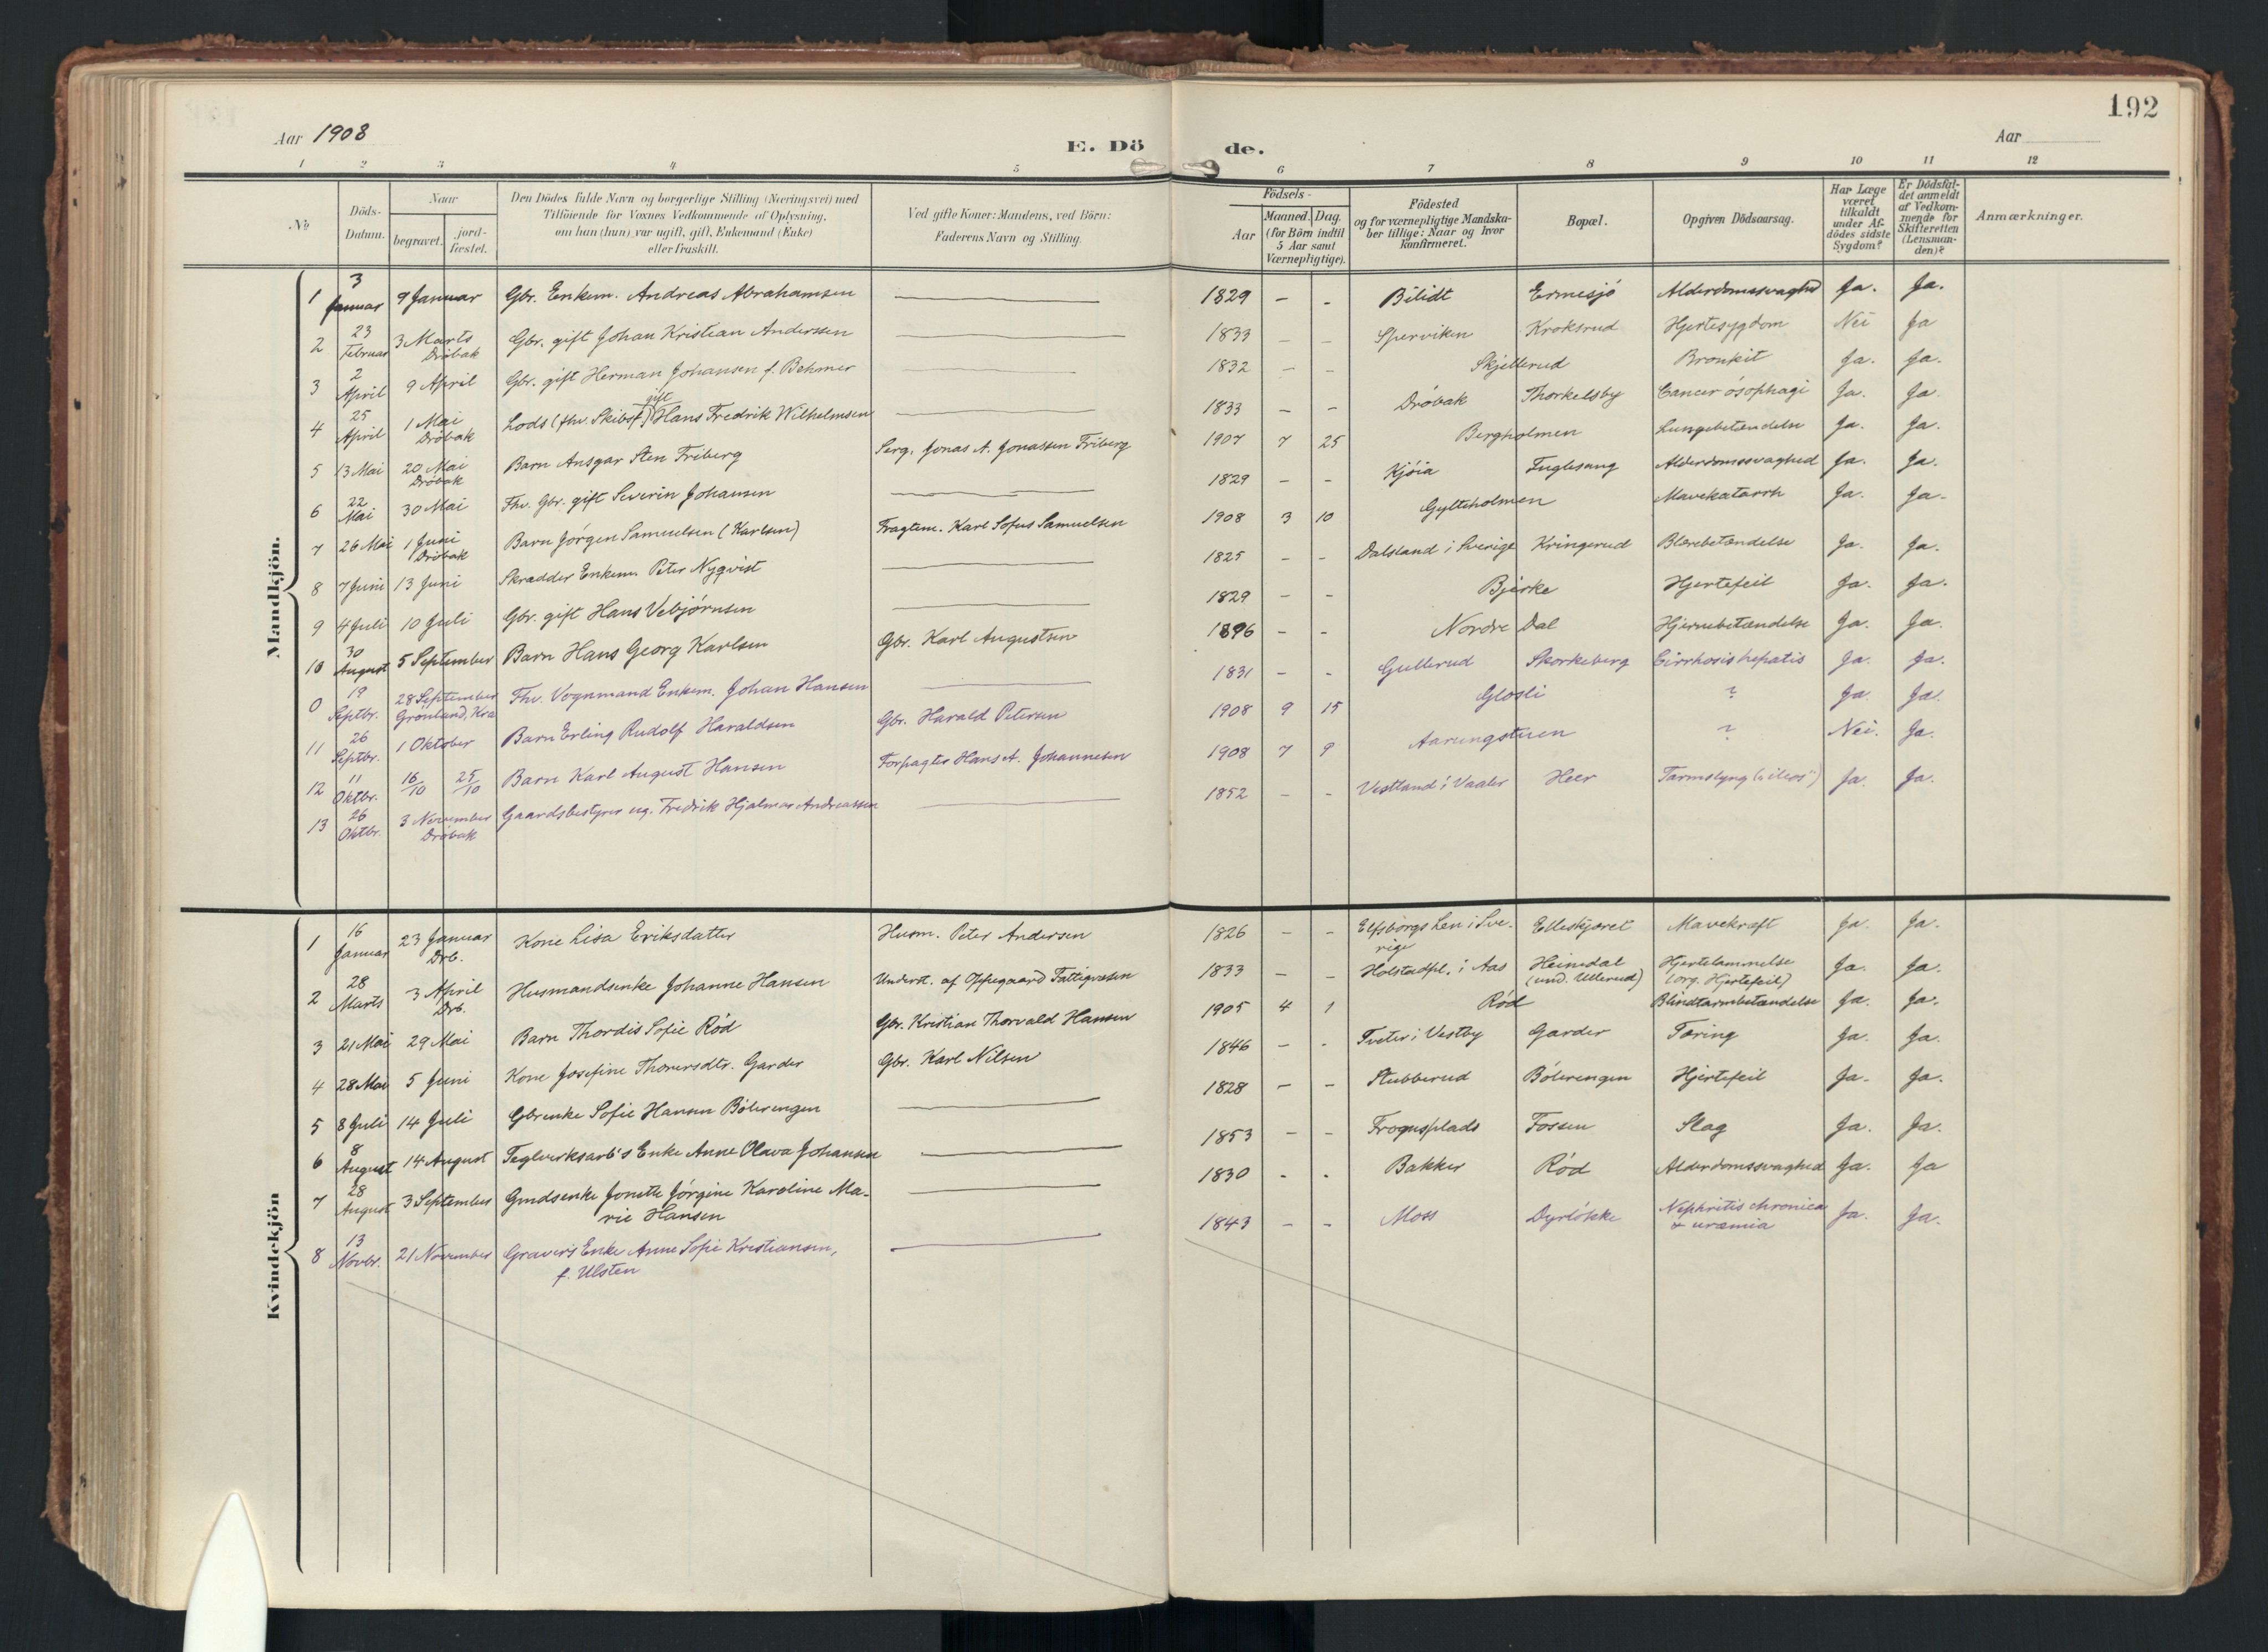 192
Aar 1908
E. Dö de.
Aar
1 2 3 4 5 6 7 8 9 10 11 12
No
Döds-Datum.
Naar
begravet.
jord-fæstet.
Den Dödes fulde Navn og borgerlige Stilling (Næringsvei) med
Tilföiende for Voxnes Vedkommende af Oplysning,
om han (hun) var ugift, gift, Enkemand (Enke)
eller fraskilt.
Ved gifte Koner: Mandens, ved Börn:
Faderens Navn og Stilling.
Födsels-
Aar
Maaned. Dag.
(for Börn indtil
5 Aar samt
Værnepligtige).
Födested
og for værnepligtige Mandska-
ber tillige: Naar og hvor
konfirmeret.
Bopæl.
Opgiven Dödsaarsag.
Har Læge
været
tilkaldt
under Af-
dödes sidste
Sygdom?
Er Dödsfal-
det anmeldt
af Vedkom-
mende for
Skifteretten
(Lensman-
den)?
Anmærkninger.
Mandkjön.
1 3 Januar 9 Januar Gbr. Enkem. Andreas Abrahamsen — 1829 - - Bilidt Ermesjö Alderdomssvaghed Ja. Ja.
2 23 Februar 3 Marts Dröbak Gbr. gift Johan Kristian Anderssen — 1833 - - Sperviken Kroksrud Hjertesygdom Nei Ja
3 2 April 9 April Gbr. gift Herman Johansen f. Behmer — 1832 - - Skjellerud Bronkit Ja. Ja.
4 25 April 1 Mai Dröbak Lods (fhv. Skibsf.) gift Hans Fredrik Wilhelmsen — 1833 - - Dröbak Thorkelsby Cancer ösophagi Ja. Ja.
5 13 Mai 20 Mai Dröbak Barn Ansgar Sten Friberg Serg. Jonas A. Jonassen Friberg 1907 7 25 Bergholmen Lungebetændelse Ja. Ja.
6 22 Mai 30 Mai Fhv. Gbr. gift Severin Johansen — 1829 - - Kjöia Fuglesang Alderdomssvaghed Ja. Ja.
7 26 Mai 1 Juni Dröbak Barn Jörgen Samuelsen (Karlsen) Fragtem. Karl Sofus Samuelsen 1908 3 10 Gylteholmen Mavekatarrh Ja. Ja.
8 7 Juni 13 Juni Skrædder Enkem. Peter Nyqvist — 1825 - - Dalsland i Sverige Kringerud Blærebetændelse Ja. Ja.
9 4 Juli 10 Juli Gbr. gift Hans Vebjörnsen — 1829 - - Bjerke Hjertefeil Ja. Ja.
10 30 August 5 September Barn Hans Georg Karlsen Gbr. Karl Augustsen 1896 - - Nordre Dal Hjernebetændelse Ja. Ja.
0 19 Septbr. 28 September Grönland, Kra Fhv. Vognmand Enkem. Johan Hansen — 1831 - - Gullerud Skorkeberg Cirrhosis hepatis Ja. Ja.
11 26 Septbr. 1 Oktober Barn Erling Rudolf Haraldsen Gbr. Harald Petersen 1908 9 15 Glosli ? Ja. Ja.
12 11 Oktbr. 16/10 25/10 Barn Karl August Hansen Forpagter Hans A. Johannesen 1908 7 9 Aarungstuen ? Nei. Ja.
13 26 Oktbr. 3 November Dröbak Gaardsbestyrer ug. Fredrik Hjalmar Andreassen — 1852 - - Vestland i Vaaler Heer Tarmslyng ("ileos") Ja. Ja.
Kvindekjön
1 16 Januar 23 Januar Drb. Kone Lisa Eriksdatter Husm. Peter Andersen 1826 - - Elfsborgs Len i Sve-rige Elleskjæret Mavekræft Ja. Ja.
2 28 Marts 3 April Drb. Husmandsenke Johanne Hansen Underst. af Oppegaard Fattigvæsen 1833 - - Holstadpl. i Aas Heimdal (und. Ullerud) Hjertelammelse (org. Hjertefeil) Ja. Ja.
3 21 Mai 29 Mai Barn Thordis Sofie Röd Gbr. Kristian Thorvald Hansen 1905 4 1 Röd Blindtarmbetændelse Ja. Ja.
4 28 Mai 5 Juni Kone Josefine Thorersdtr. Garder Gbr. Karl Nilsen 1846 - - Tveter i Vestby Garder Tæring Ja. Ja.
5 8 Juli 14 Juli Gbrenke Sofie Hansen Bölerengen — 1828 - - Stubberud Bölerengen Hjertefeil Ja. Ja.
6 8 August 14 August Teglverksarb's Enke Anne Olava Johansen — 1853 - - Frognsplads Fossen Slag Ja. Ja.
7 28 August 3 September Gmdsenke Jonette Jörgine Karoline Ma-
rie Hansen — 1830 - - Bakker Röd Alderdomssvaghed Ja. Ja
8 13 Novbr. 21 November Gravers Enke Anne Sofie Kristiansen,
f. Ulsten — 1843 - - Moss Dyrlökke Nephritis chronica & uræmia Ja. Ja.